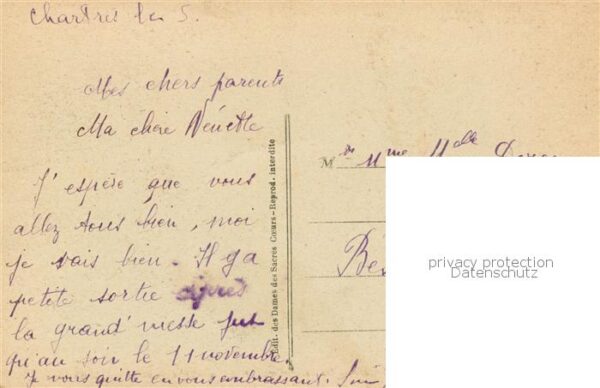 Chartres le 5.
Mes chers parents
Ma chère Nénette
J'espère que vous
allez tous bien, moi
je vais bien. Il y a
petite sortie après
la grand'messe jus
qu'au soir le 11 novembre.
Je vous quitte en vous embrassant.
Edit. des Dames des Sacrés Cœurs - Reprod. interdite
Mr Mme Melle
privacy protection
Datenschutz